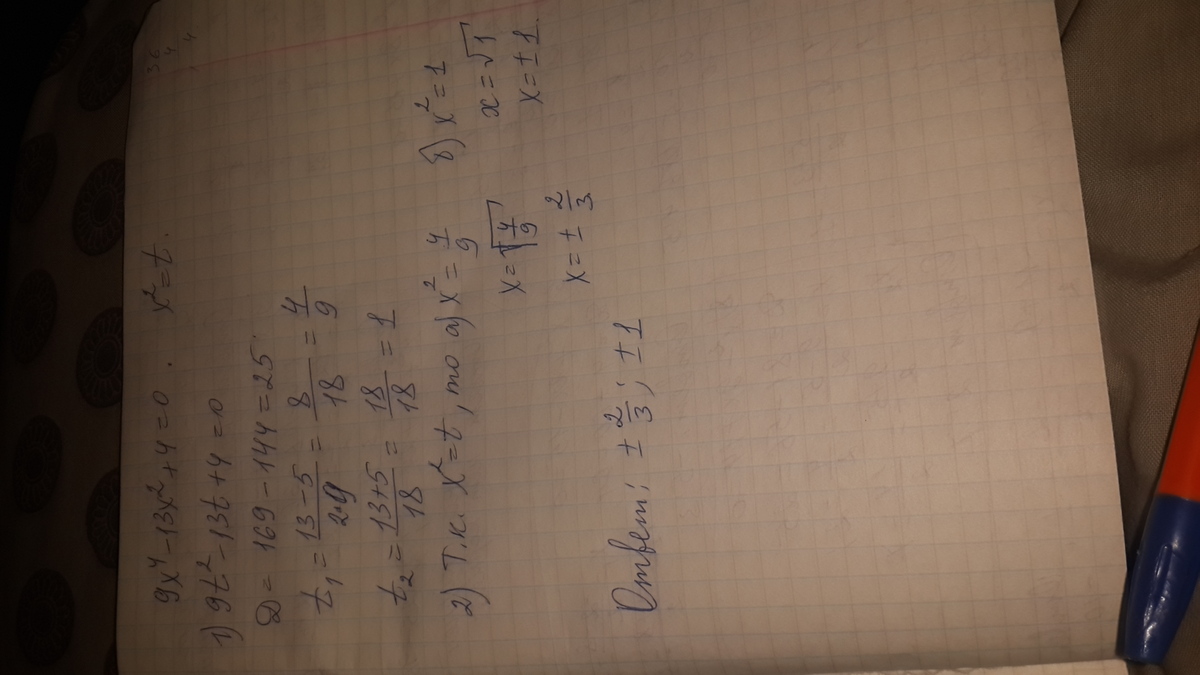 9x⁴ - 13x² + 4 = 0 . x² = t.
1) 9t² - 13t + 4 = 0
D = 169 - 144 = 25
t₁ = (13 - 5)/(2·9) = 8/18 = 4/9
t₂ = (13 + 5)/18 = 18/18 = 1
2) Т.к. x² = t, то а) x² = 4/9
x = √(4/9)
x = ± 2/3
б) x² = 1
x = √1
x = ± 1.
Ответ: ± 2/3; ± 1
36
4
4